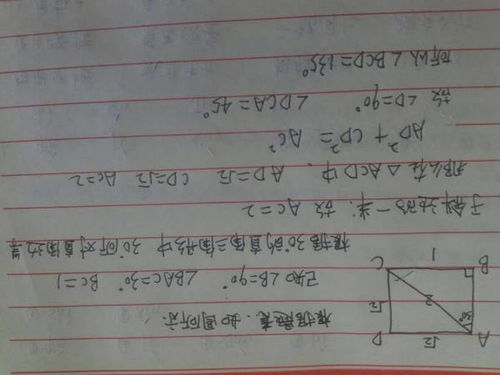 根据题意,如图所示.
已知∠B=90° ∠BAC=30° BC=1
根据30°的直角三角形中30°所对直角边等
于斜边的一半.故 AC=2
那么在△ACD中, AD=√2 CD=√2 AC=2
AD²+CD²=AC²
故 ∠D=90° ∠DCA=45°
所以∠BCD=135°
A
√2
D
30°
2
√2
B
1
C